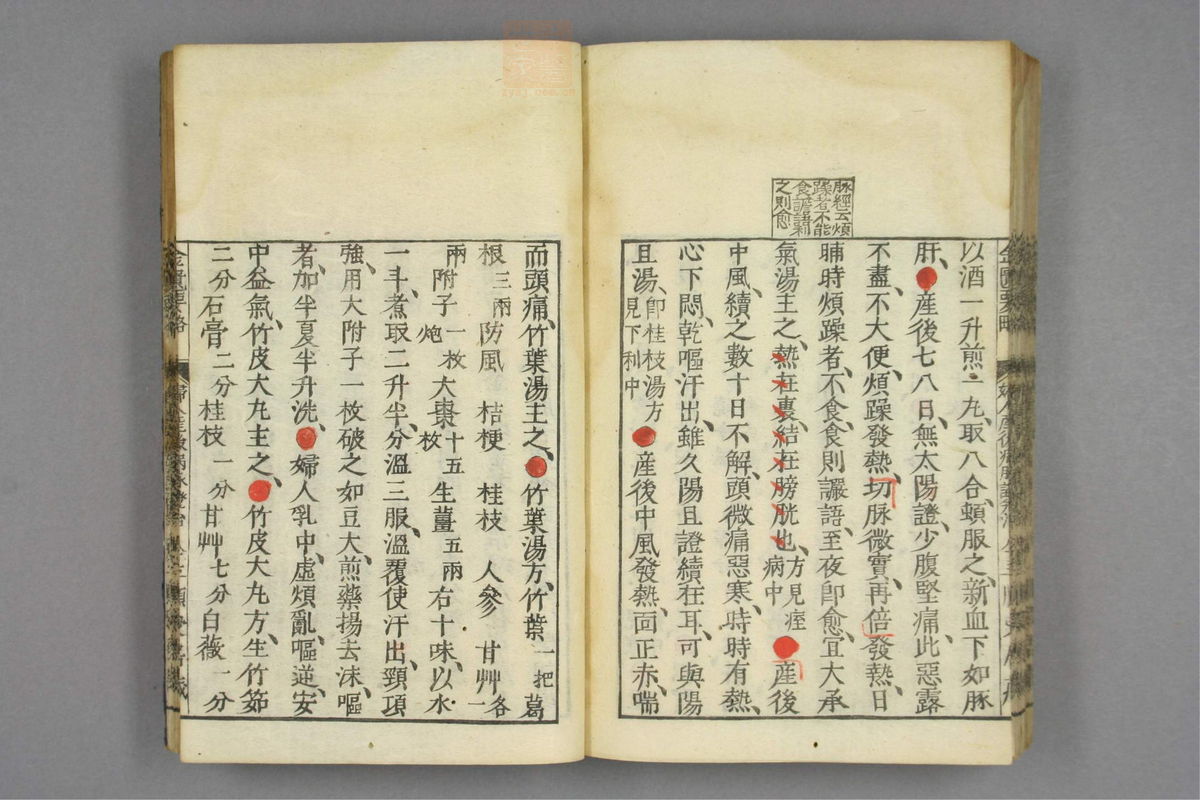 脉經云煩
躁者不能
食譫語利
之則愈
以酒一升煎一九取八合頓服之新血下如豚
肝●產後七八日無太陽證少腹堅痛此惡露
不盡不大便煩躁發熱切脉微實再倍發熱日
晡時煩躁者不食食則讝語至夜卽愈宜大承
氣湯主之熱在裏結在膀胱也方見痓病中●產後
中風續之數十日不解頭微痛惡寒時時有熱
心下悶乾嘔汗出雖久陽旦證續在耳可與陽
旦湯卽桂枝湯方見下利中●產後中風發熱面正赤喘
而頭痛竹葉湯主之●竹葉湯方竹葉一把葛
根三兩防風 桔梗 桂枝 人參 甘艸各一
兩附子一枚炮大棗十五枚生薑五兩右十味以水
一斗煮取二升半分溫三服溫覆使汗出頸項
強用大附子一枚破之如豆大煎藥揚去沫嘔
者加半夏半升洗●婦人乳中虛煩亂嘔逆安
中益氣竹皮大丸主之●竹皮大丸方生竹茹
二分石膏二分桂枝一分甘艸七分白薇一分